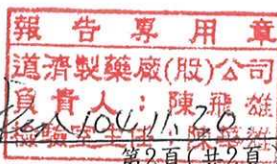 報告專用章
道濟製藥廠(股)公司
負責人：陳飛雄
檢驗室主任：陳
104.11.20
第2頁(共2頁